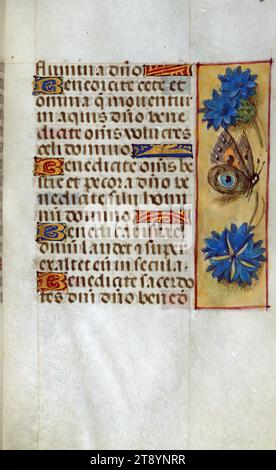 flumina dño
Benedicite cete et
omnia q mouentur
in aquis dño bene
dicite oms volucres
celi domino
Benedicite oms be
stie et pecora dño be
nedicite filii homi
nu domino
Benedicat israel
dnum laudet et super
exaltet eu in secula
Benedicite sacerdo
tes dni dño bened
alamy
Image ID: 2T8YNRR
www.alamy.com